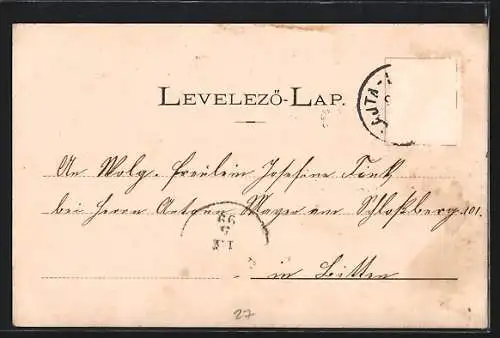 LEVELEZŐ-LAP.
GUTA-
An Wolg. Fräulein Josefine Fönk
bei Herrn Anton Mayer am Schloßberg 101.
99
5
in
27